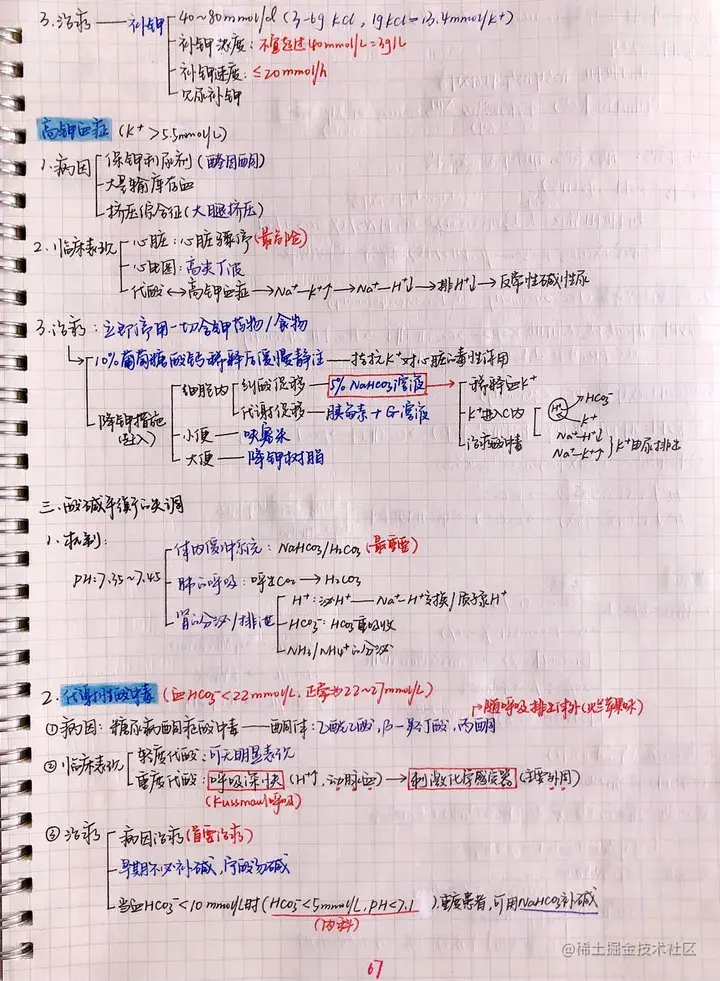 3.治疗——补钾 40~80mmol/d (3-6g KCl, 1gKCl=13.4mmol/K⁺)
补钾浓度:不宜超过40mmol/L=3g/L
补钾速度:≤20mmol/h
见尿补钾
高钾血症 (K⁺>5.5mmol/L)
1.病因 保钾利尿剂(螺内酯)
大量输库存血
挤压综合征(大腿挤压)
2.临床表现 心脏:心脏骤停(最危险)
心电图:高尖T波
代酸↔高钾血症→Na⁺-K⁺↑→Na⁺-H⁺↓→排H⁺↓→反常性碱性尿
3.治疗:立即停用一切含钾药物/食物
10%葡萄糖酸钙稀释后缓慢静注——拮抗K⁺对心脏的毒性作用
降钾措施 细胞内 纠酸促移——5%NaHCO₃溶液→稀释血K⁺
代谢促移——胰岛素+G溶液 K⁺进入C内 H⁺ HCO₃⁻ K⁺
治疗酸中毒 Na⁺-H⁺↓ Na⁺-K⁺↑ }K⁺由尿排出
小便——呋塞米
大便——降钾树脂
三.酸碱平衡的失调
1.机制:
PH:7.35~7.45 体内缓冲系统:NaHCO₃/H₂CO₃(最重要)
肺的呼吸:呼出CO₂→H₂CO₃
肾的分泌/排泄 H⁺:泌H⁺——Na⁺-H⁺交换/质子泵H⁺
HCO₃⁻:HCO₃⁻重吸收
NH₃/NH₄⁺的分泌
2.代谢性酸中毒(血HCO₃⁻<22mmol/L,正常为22~27mmol/L)
随呼吸排出体外(烂苹果味)
①病因:糖尿病酮症酸中毒——酮体:乙酰乙酸,β-羟丁酸,丙酮
②临床表现 轻度代酸:可无明显表现
重度代酸:呼吸深快(H⁺↑,动脉血)→刺激化学感受器(主要外周)
(Kussmaul呼吸)
③治疗 病因治疗(首要治疗)
早期不必补碱,宁酸勿碱
当血HCO₃⁻<10mmol/L时(HCO₃⁻<5mmol/L,PH<7.1),重度患者,可用NaHCO₃补碱
(内科)
@稀土掘金技术社区
67